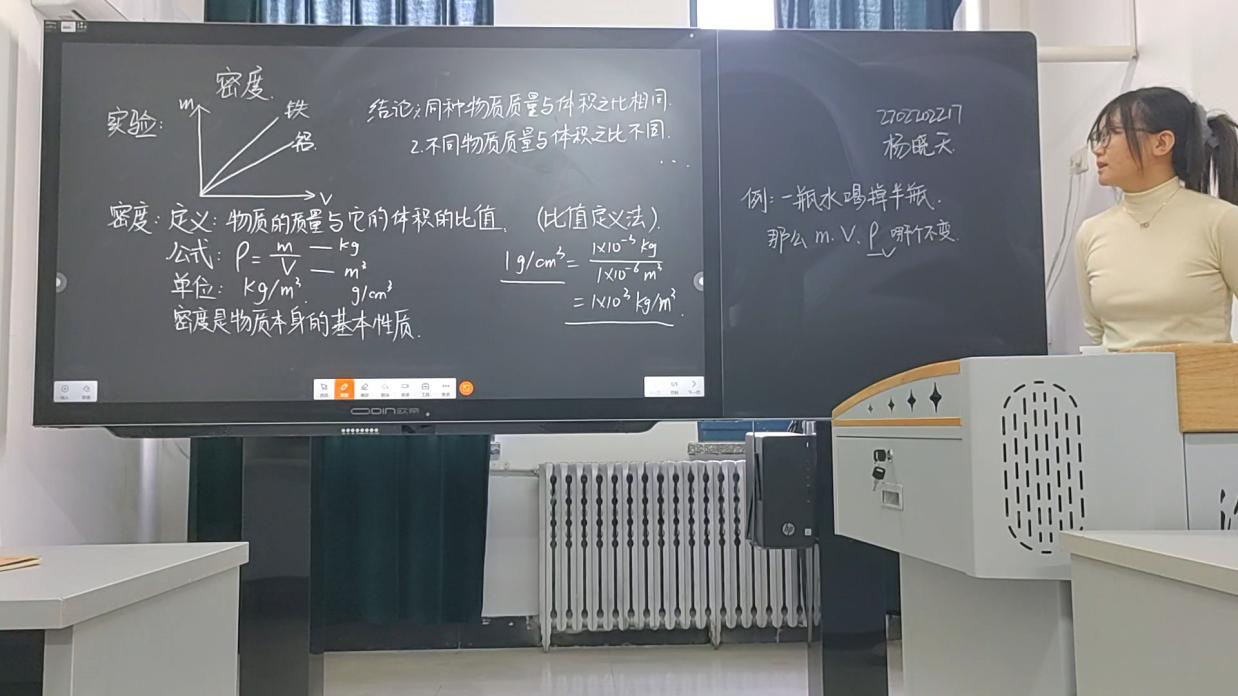 密度.
实验:
m
铁
铝.
V
结论:1.同种物质质量与体积之比相同.
2.不同物质质量与体积之比不同.
...
密度: 定义: 物质的质量与它的体积的比值. (比值定义法).
公式: ρ = m/V — kg — m³
单位: kg/m³. g/cm³
密度是物质本身的基本性质.
1 g/cm³ = 1×10⁻³ kg / 1×10⁻⁶ m³
= 1×10³ kg/m³.
2202202217
杨晓天.
例: 一瓶水喝掉半瓶.
那么 m. V. ρ 哪个不变.
OOiN欧帝
hp